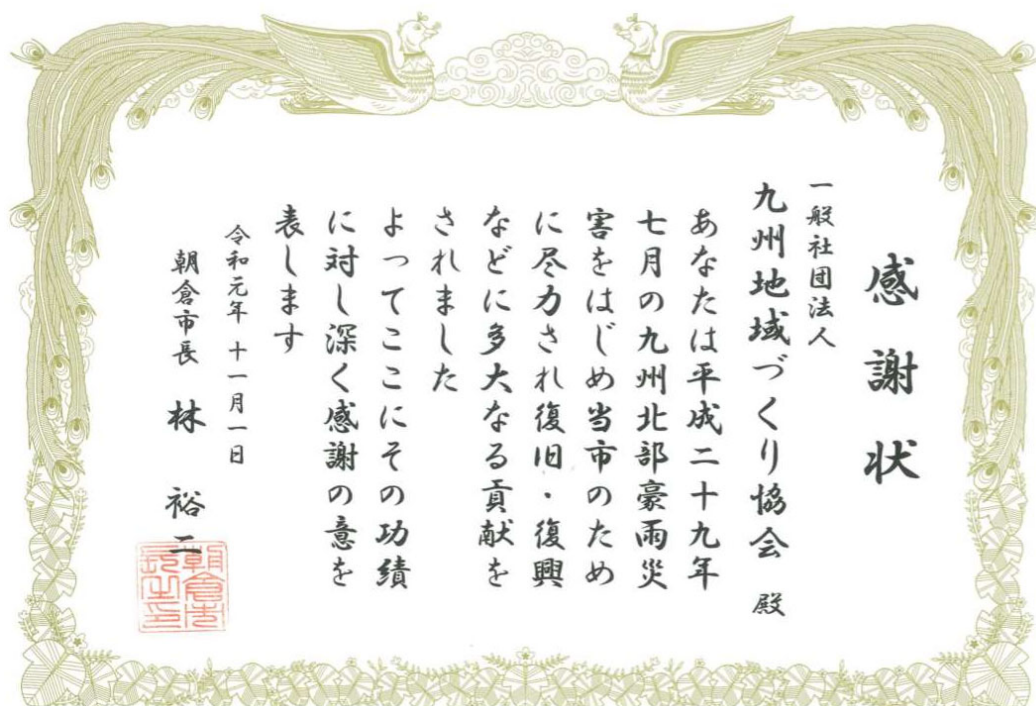 感謝状
一般社団法人
九州地域づくり協会 殿
あなたは平成二十九年
七月の九州北部豪雨災
害をはじめ当市のため
に尽力され復旧・復興
などに多大なる貢献を
されました
よってここにその功績
に対し深く感謝の意を
表します
令和元年 十一月一日
朝倉市長 林 裕二
朝倉市
長之印